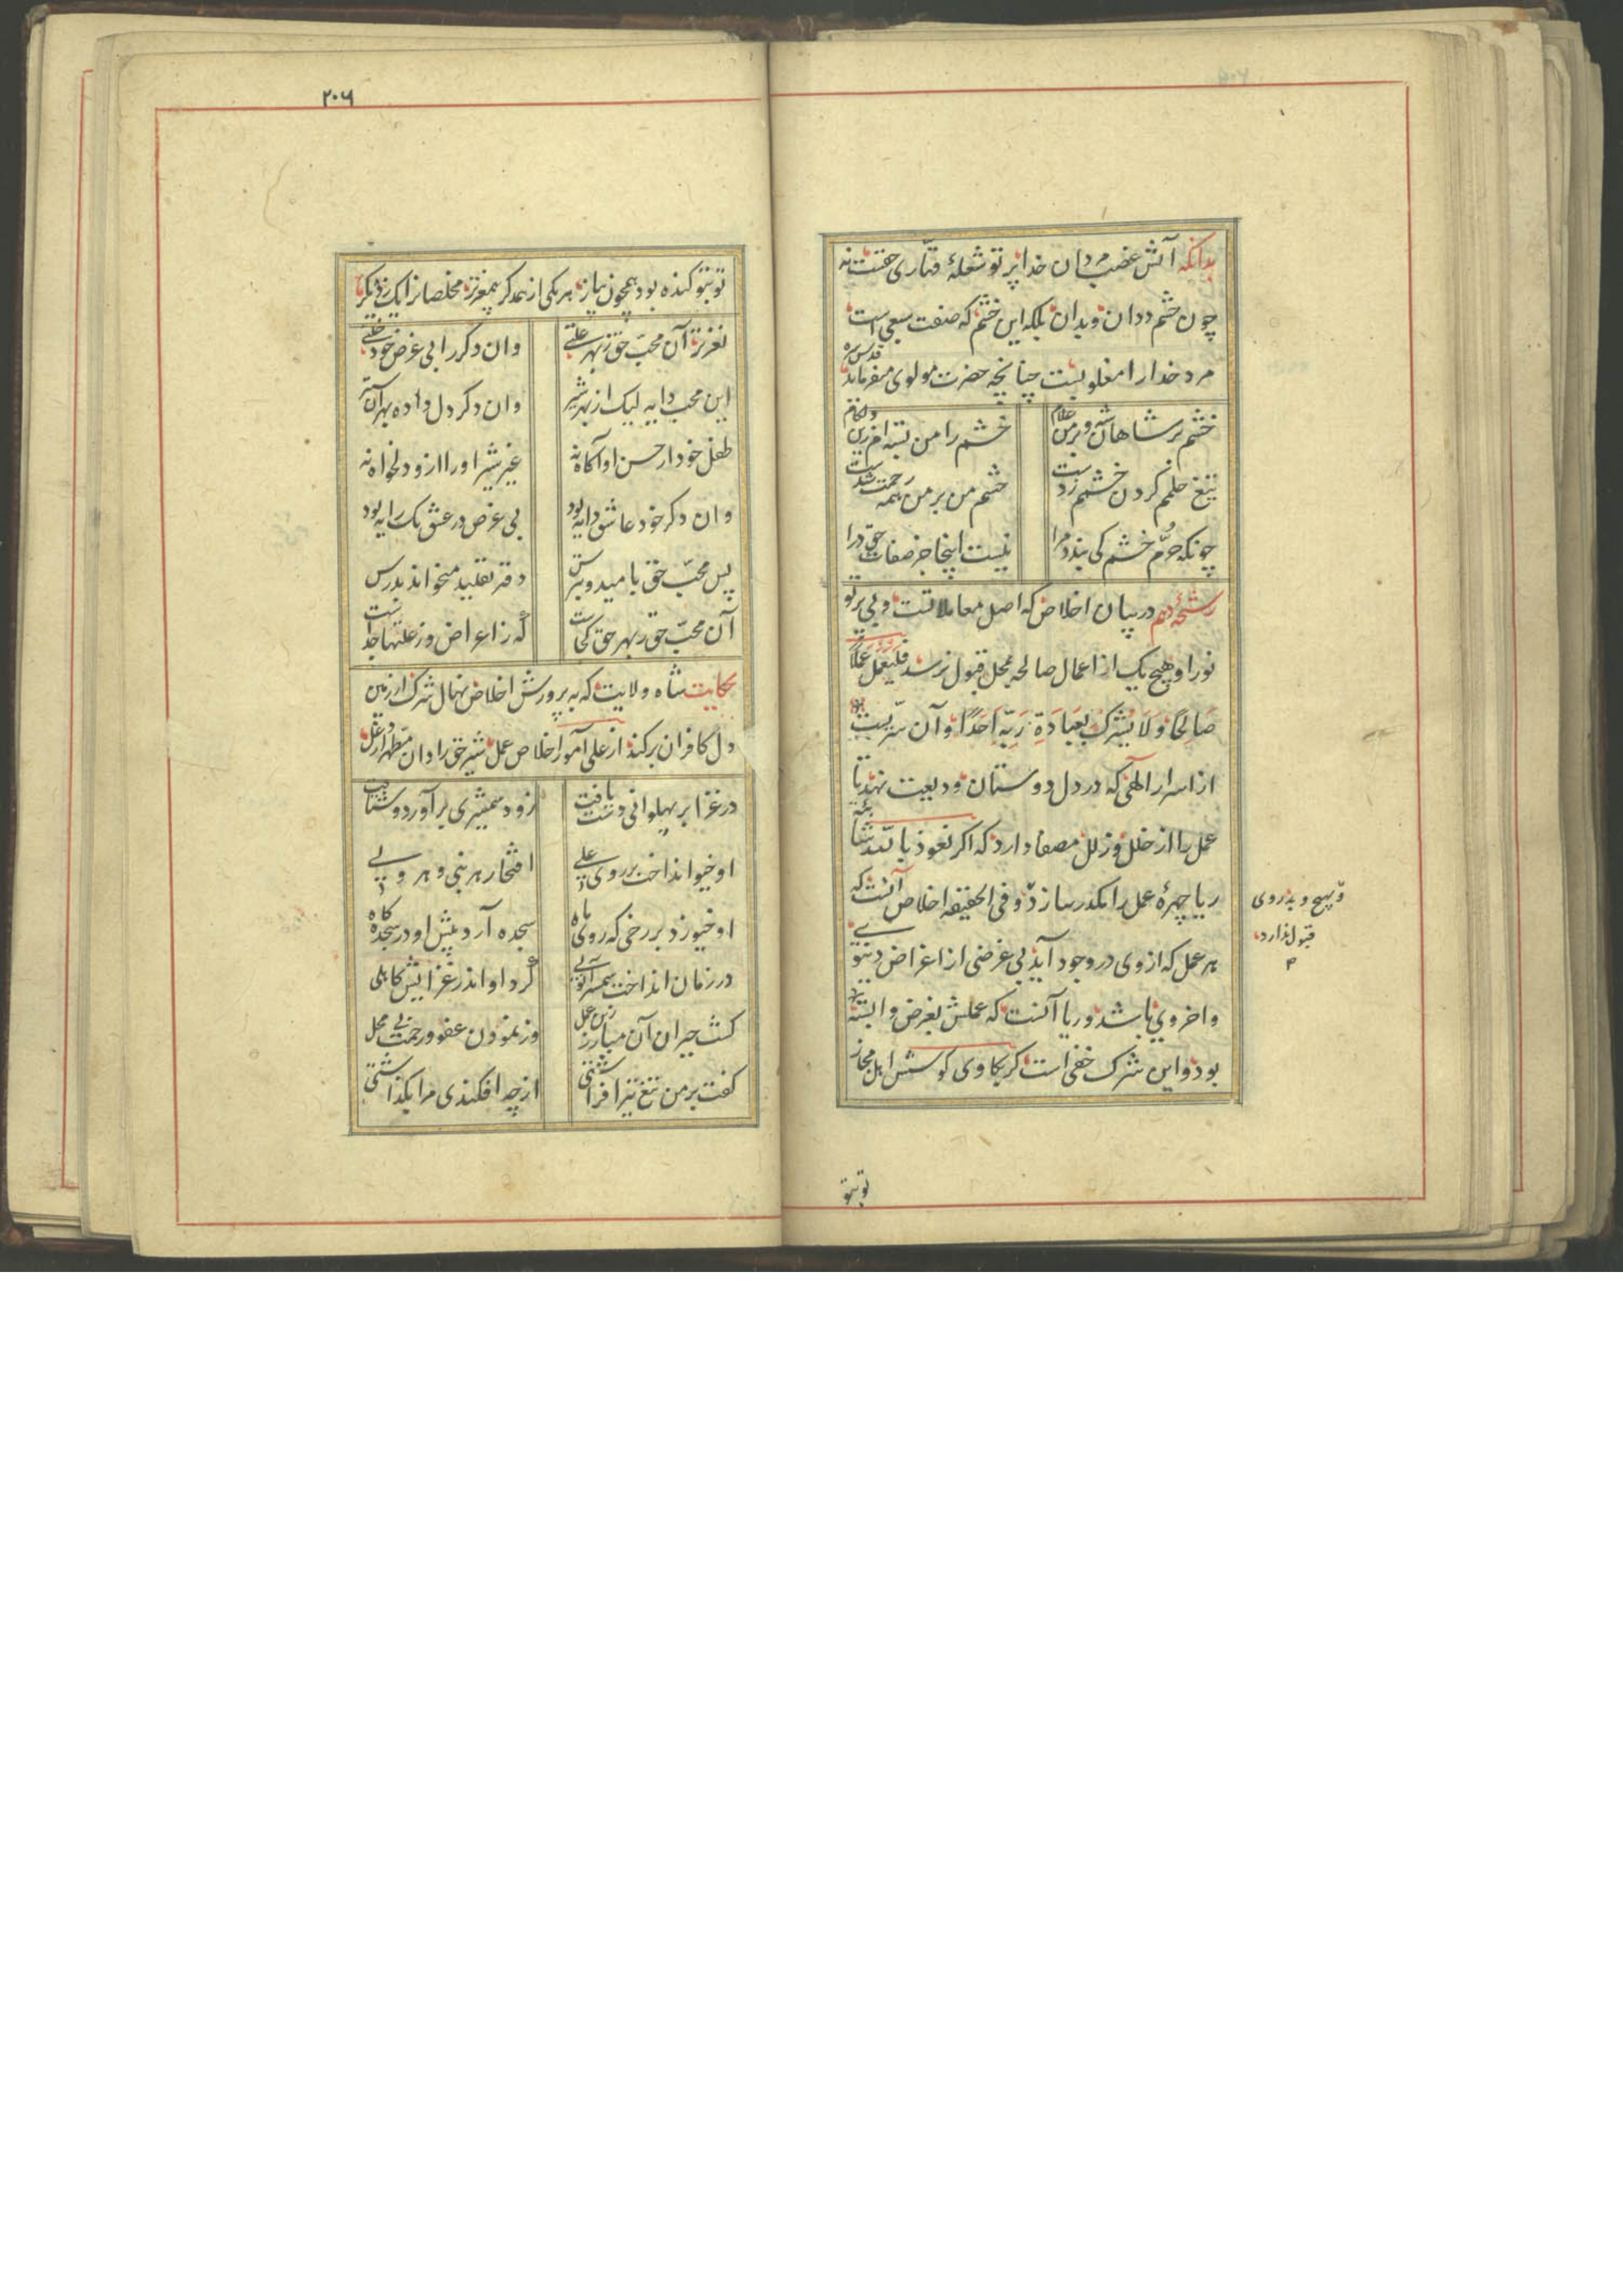 بدانکه آتش غضب مردان خدا پرتو شعلهٔ قهاری حقست نه
چون خشم ددان و بدان بلکه این خشم که صفت سبعی است
مرد خدا را مغلوبست چنانچه حضرت مولوی قدس سره میفرماید
خشم بر شاهان شه و بر من غلام
خشم را من بسته ام زیر لگام
تیغ حلمم گردن خشمم زدست
خشم من بر من همه رحمت شدست
چونکه حرم خشم کی بندد مرا
نیست اینجا جز صفات حق درا
رشحهٔ دهم در بیان اخلاص که اصل معاملاتست و بی پرتو
نور او هیچ یک از اعمال صالحه بمحل قبول نرسد فلیعمل عملا
صَالِحًا وَلَا یُشْرِکْ بِعِبَادَةِ رَبِّهِ اَحَدًا و آن سرّیست
از اسرار الهی که در دل دوستان ودیعت نهند تا
عمل را از خلل و زلل مصفا دارد که اگر نعوذ بالله شائبه
ریا چهرهٔ عمل را مکدر سازد و فی الحقیقه اخلاص آنست که
هر عمل که از وی در وجود آید بی غرضی از اغراض دنیوی
و اخروی باشد و ریا آنست که عملش بغرض وابسته
بود و این شرک خفی است گر بکاوی کوشش اهل مجاز
و هیچ وجه روی
قبول ندارد
توبتو
۲۰۶
توبتو گنده بود همچون پیاز هر یکی از همدگر بیمغزتر مخلصانرا یک ز دیگر
نغزتر آن محبّ حق ز بهر علتی
وان دگر را بی غرض خود خلتی
این محب دایه لیک از بهر شیر
وان دگر دل داده بهر آن ستیر
طفل خود از حسن او آگاه نه
غیر شیر او را ازو دلخواه نه
وان دگر خود عاشق دایه بود
بی غرض در عشق یک رایه بود
پس محبّ حق بامید و بترس
دفتر تقلید میخواند بدرس
آن محبّ حق ز بهر حق کجاست
که ز اعراض و ز علتها جداست
حکایت شاه ولایت که به پرورش اخلاص نهال شرک از زمین
دل کافران برکند از علی آموز اخلاص عمل شیر حق را دان مطهر از دغل
در غزا بر پهلوانی دست یافت
زود شمشیری برآورد و شتافت
او خیو انداخت بر روی علی
افتخار هر نبی و هر ولی
او خیو زد بر رخی که روی ماه
سجده آرد پیش او در سجده گاه
در زمان انداخت شمشیر آن علی
کرد او اندر غزایش کاهلی
گشت حیران آن مبارز زین عمل
وز نمودن عفو و رحمت بی محل
گفت بر من تیغ تیز افراشتی
از چه افکندی مرا بگذاشتی